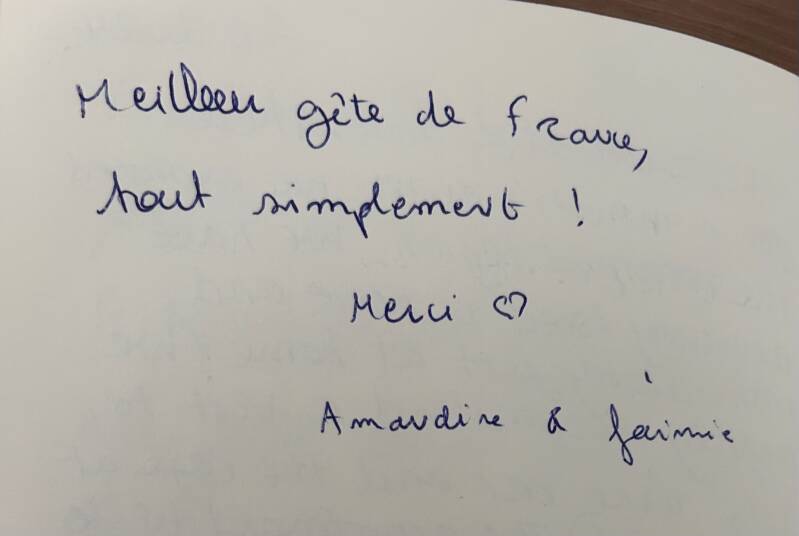 Meilleur gîte de France,
tout simplement !
Merci ♡
Amandine &